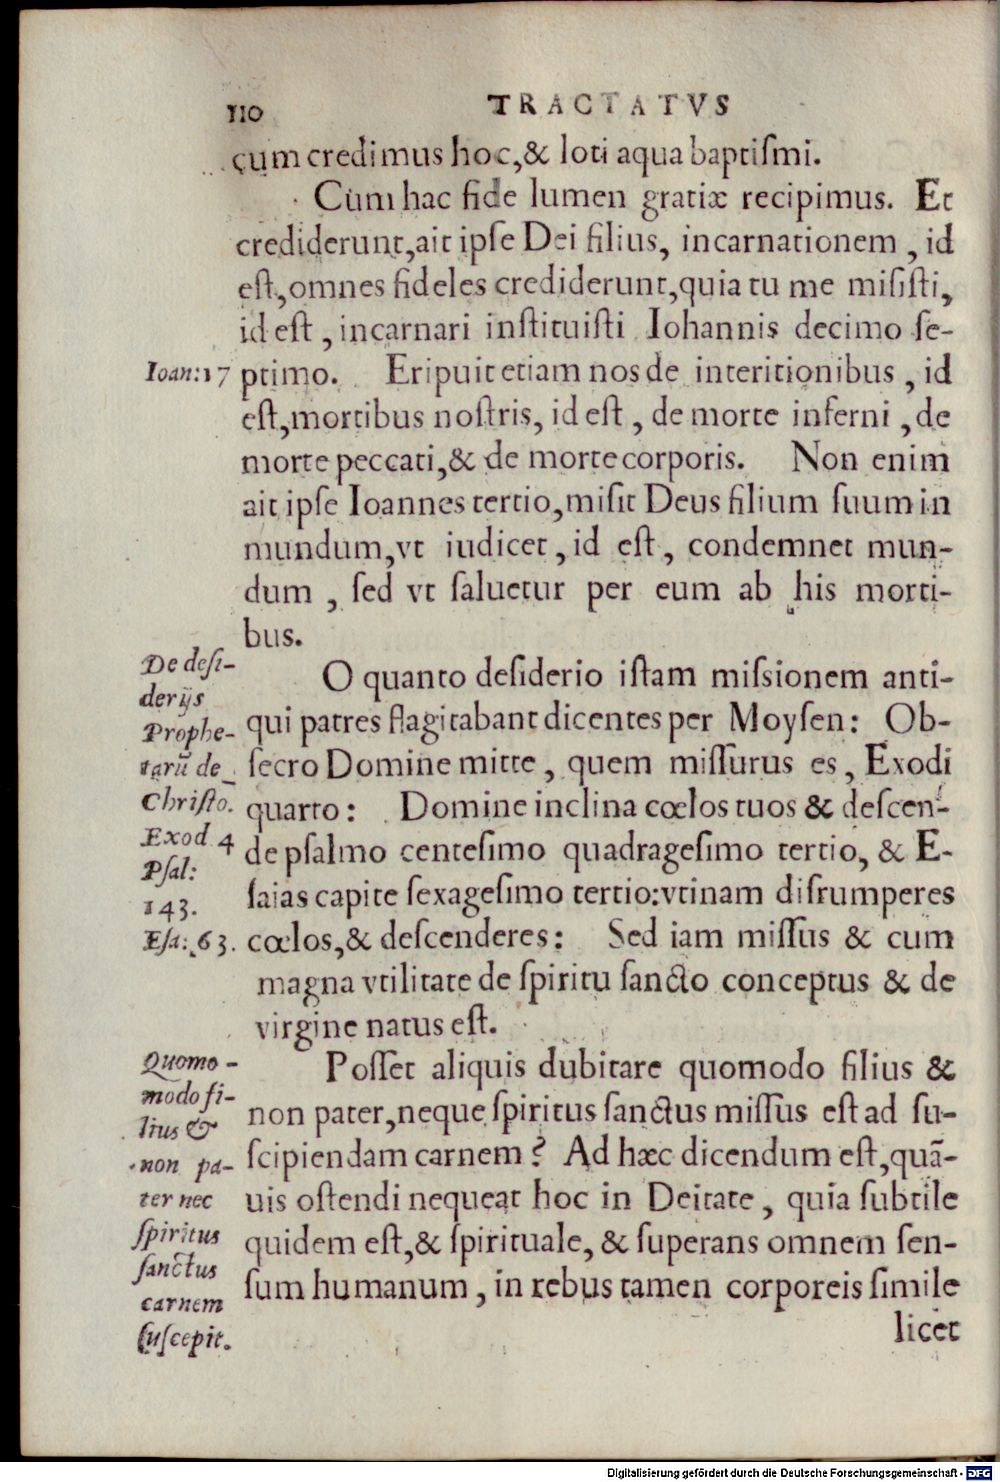 110 TRACTATVS
cum credimus hoc,& loti aqua baptiſmi.
Cùm hac fide lumen gratiæ recipimus. Et
crediderunt,ait ipſe Dei filius, incarnationem , id
eſt,omnes fideles crediderunt,quia tu me miſiſti,
id eſt , incarnari inſtituiſti Iohannis decimo ſe-
Ioan:17
ptimo. Eripuit etiam nos de interitionibus , id
eſt,mortibus noſtris, id eſt , de morte inferni , de
morte peccati,& de morte corporis. Non enim
ait ipſe Ioannes tertio,miſit Deus filium ſuum in
mundum,vt iudicet , id eſt , condemnet mun-
dum , ſed vt ſaluetur per eum ab his morti-
bus.
De deſi-
derijs
Prophe-
tarũ de
Chriſto.
Exod 4
Pſal:
143.
Eſa: 63.
O quanto deſiderio iſtam miſsionem anti-
qui patres flagitabant dicentes per Moyſen: Ob-
ſecro Domine mitte , quem miſſurus es , Exodi
quarto: Domine inclina cœlos tuos & deſcen-
de pſalmo centeſimo quadrageſimo tertio, & E-
ſaias capite ſexageſimo tertio:vtinam diſrumperes
cœlos,& deſcenderes: Sed iam miſſus & cum
magna vtilitate de ſpiritu ſancto conceptus & de
virgine natus eſt.
Quomo-
modo fi-
lius &
non pa-
ter nec
ſpiritus
ſanctus
carnem
ſuſcepit.
Poſſet aliquis dubitare quomodo filius &
non pater,neque ſpiritus ſanctus miſſus eſt ad ſu-
ſcipiendam carnem ? Ad hæc dicendum eſt,quã-
uis oſtendi nequeat hoc in Deitate , quia ſubtile
quidem eſt,& ſpirituale, & ſuperans omnem ſen-
ſum humanum , in rebus tamen corporeis ſimile
licet
Digitalisierung gefördert durch die Deutsche Forschungsgemeinschaft - DFG